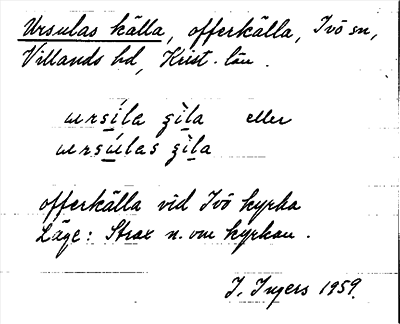 Ursulas källa, offerkälla, Ivö sn,
Villands hd, Krist. län.
ursíla çìla eller
ursúlas çìla
offerkälla vid Ivö kyrka
Läge: Strax n. om kyrkan.
I. Ingers 1959.